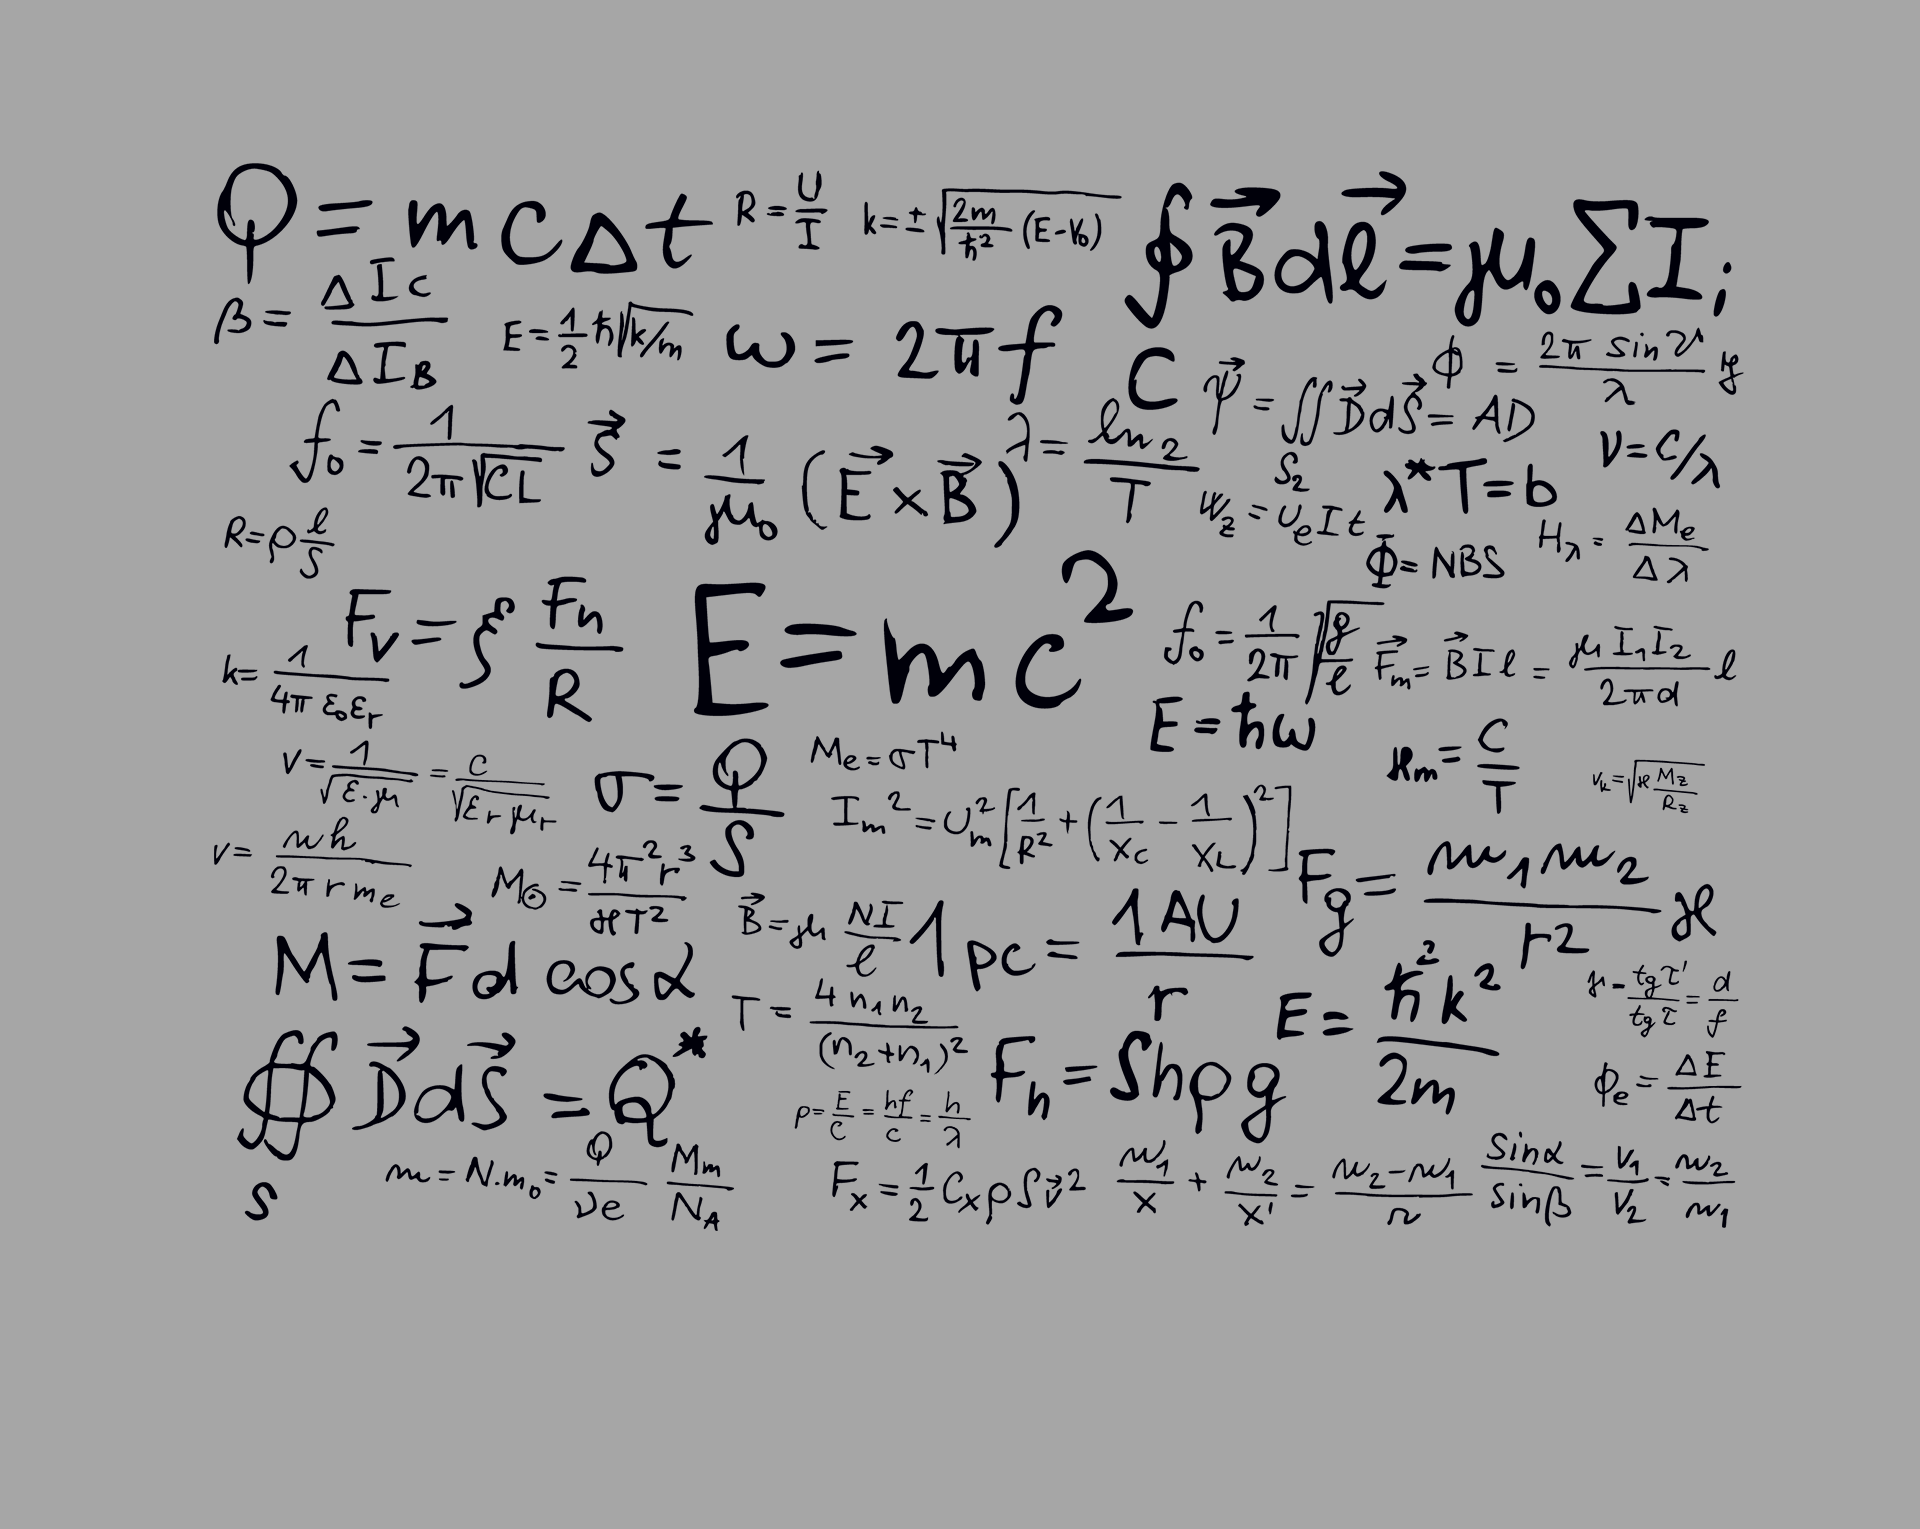 Q = m c Δ t
R = U/I
k = ± √(2m/ħ² (E-V₀))
∮ B⃗ d l⃗ = μ₀ Σ I i
C
β = ΔIc/ΔI_B
E = 1/2 ħ √(k/m)
ω = 2π f
Ψ⃗ = ∬ D⃗ d S⃗ = AD
S₂
ϕ = 2π sin ϑ/λ y
f₀ = 1/(2π√(CL))
S⃗ = 1/μ₀ (E⃗ × B⃗)
λ = ln 2/T
ν = c/λ
λ* T = b
R = ρ l/S
W_z = U_e I t
H_λ = ΔM_e/Δλ
Φ = NBS
F_v = ξ F_n/R
E = mc²
f₀ = 1/2π √(g/l)
F⃗_m = B⃗ I l = μ I₁I₂/2πd l
k = 1/(4π ε₀ε_r)
E = ħω
v = 1/√(ε·μ) = c/√(ε_r μ_r)
σ = Q/S
M_e = σT⁴
ϰ_m = C/T
v_k = √(ϰ M_z/R_z)
I_m² = U_m² [1/R² + (1/X_C - 1/X_L)²]
v = nh/(2π r m_e)
M_⊙ = 4π²r³/ϰT²
F_g = m₁m₂/r² ϰ
B⃗ = μ NI/l
1 pc = 1 AU/r
M = F⃗ d cos α
T = 4 n₁ n₂/(n₂+n₁)²
E = ħ²k²/2m
γ = tg τ'/tg τ = d/f
∯ D⃗ d S⃗ = Q*
S
F_h = Shρg
ϕ_e = ΔE/Δt
p = E/c = hf/c = h/λ
m = N.m₀ = Q/νe M_m/N_A
F_x = 1/2 C_x ρ S v⃗²
n₁/x + n₂/x' = (n₂-n₁)/r
sinα/sinβ = v₁/v₂ = n₂/n₁